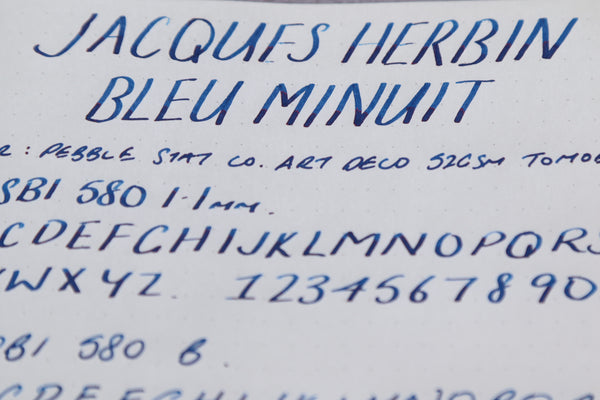 JACQUES HERBIN
BLEU MINUIT
R : PEBBLE STAT CO. ART DECO 52GSM TOMOE
SBI 580 1.1mm.
CDEFGHIJKLMNOPQRS
WXYZ 1234567890
SBI 580 B
CDEFGHIJKLMNOPQ